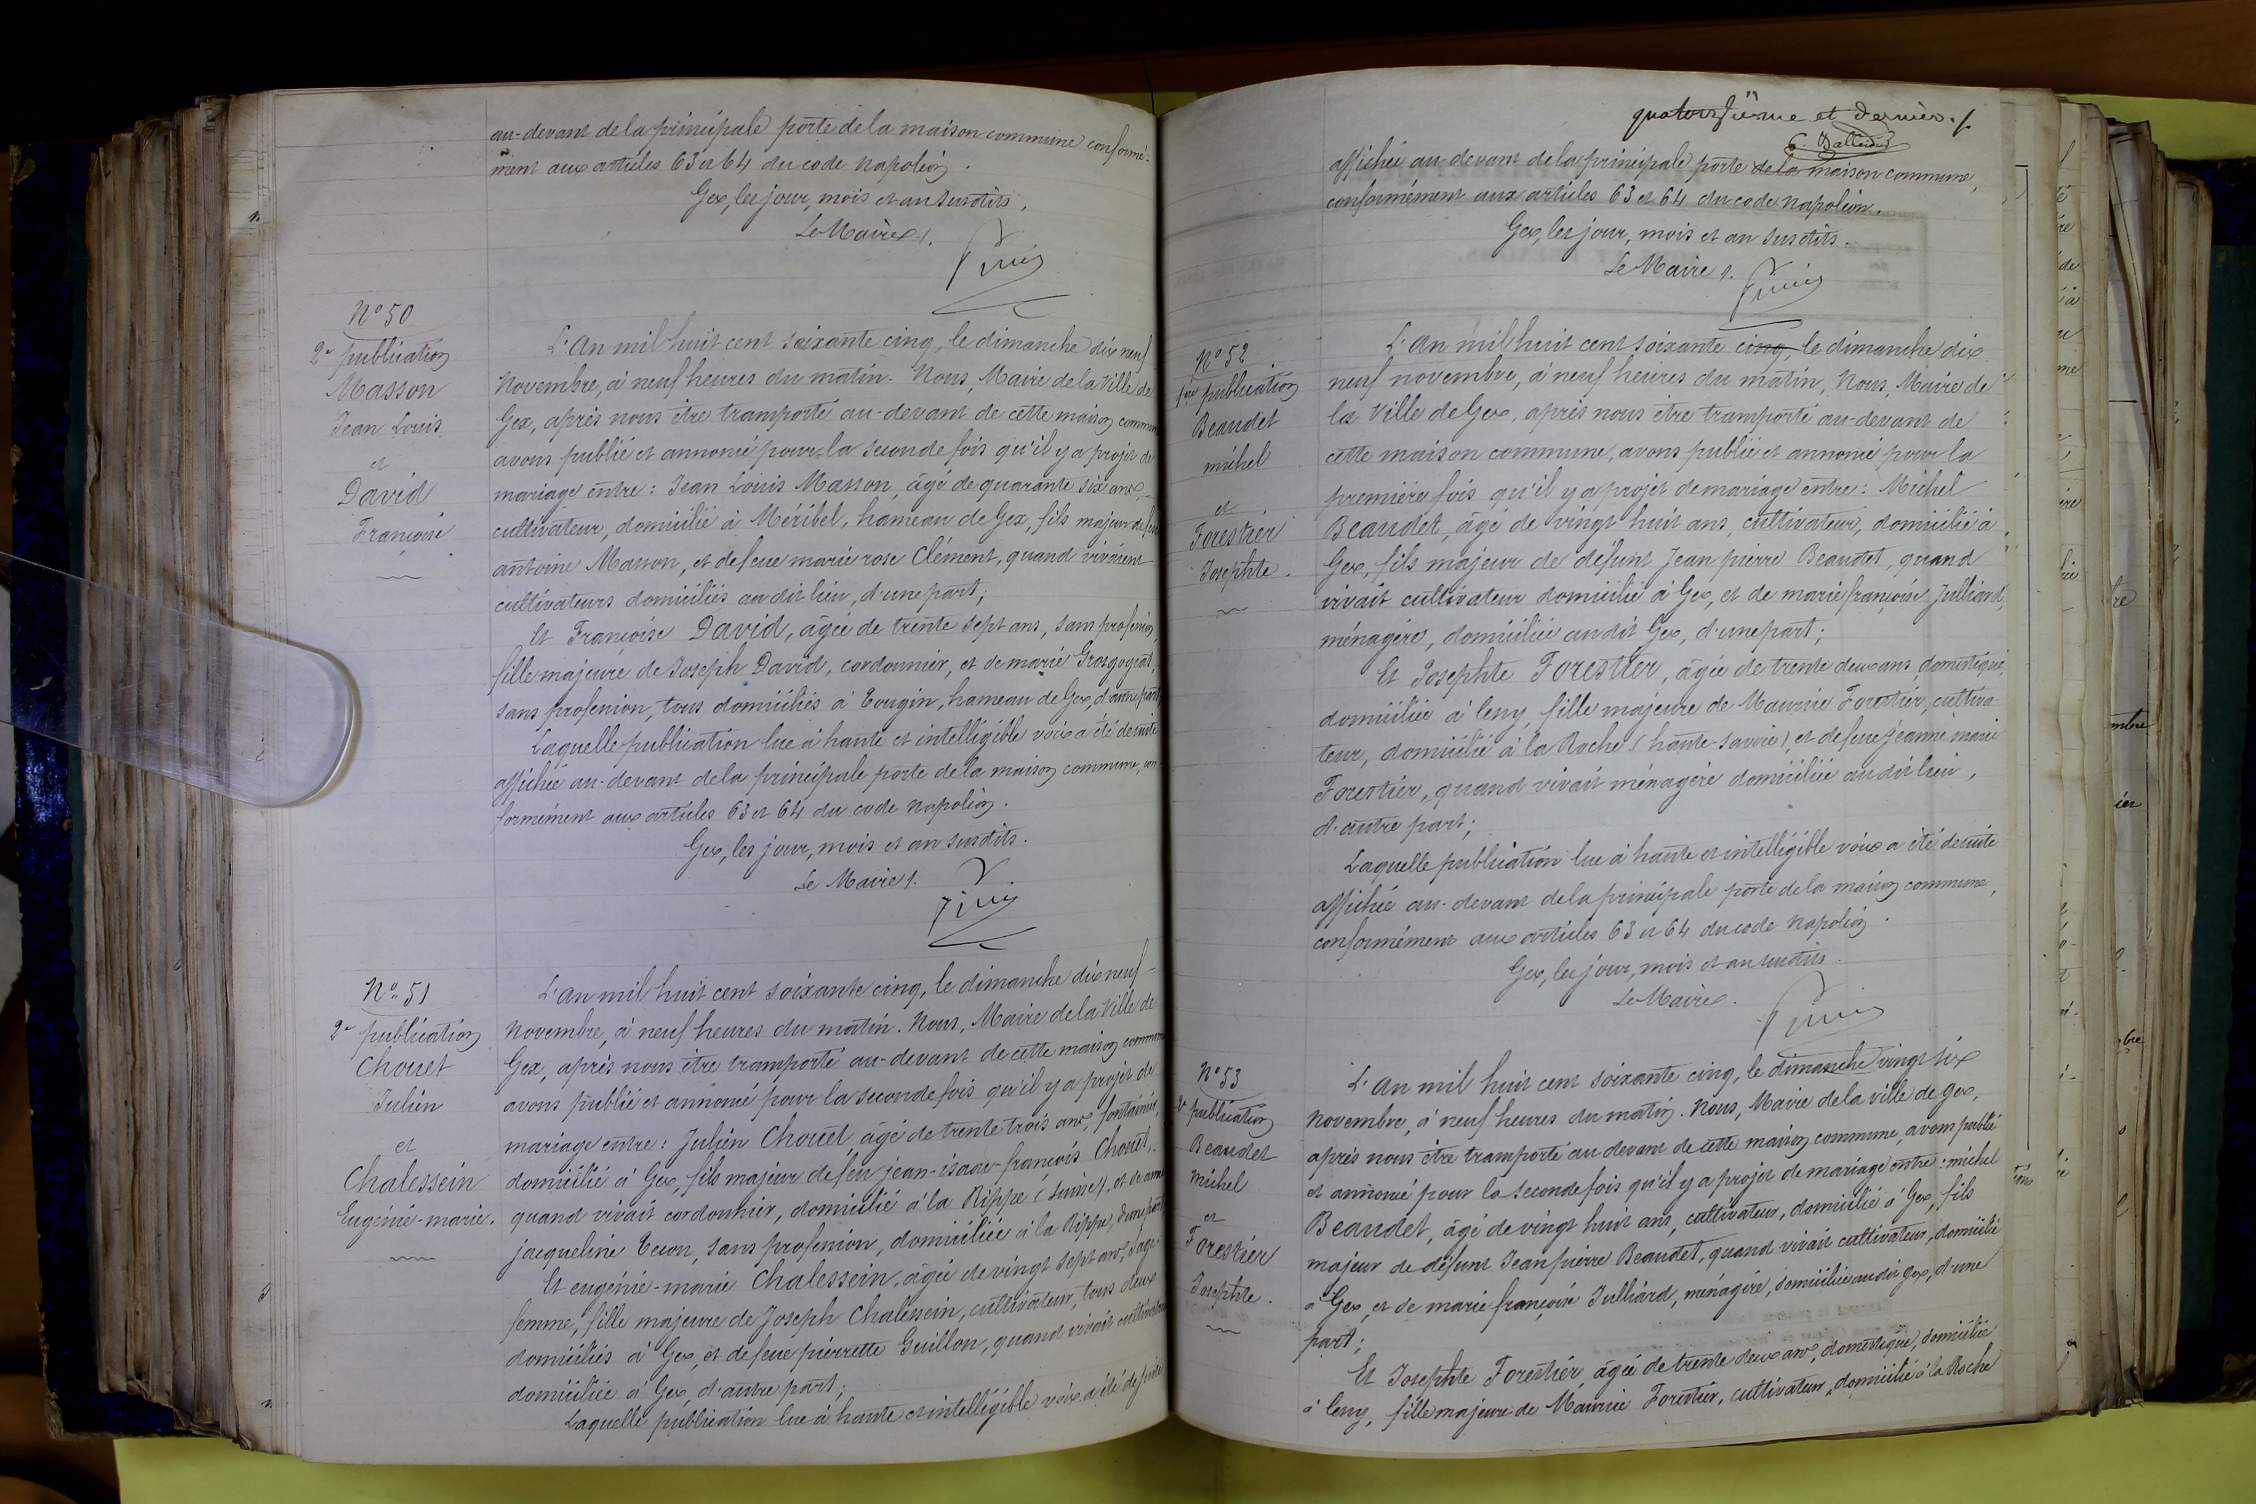 au-devant de la principale porte de la maison commune conformé-
ment aux articles 63 et 64 du code Napoléon.
Gex, les jour, mois et an susdits.
Le Maire
N° 50
2e publication
Masson
Jean Louis
et
David
Françoise
L'An mil huit cent soixante cinq, le dimanche dix neuf
Novembre, à neuf heures du matin. Nous, Maire de la Ville de
Gex, après nous être transporté au-devant de cette maison commune
avons publié et annoncé pour la seconde fois qu'il y a projet de
mariage entre : Jean Louis Masson, âgé de quarante six ans,
cultivateur, domicilié à Méribel, hameau de Gex, fils majeur de feu
antoine Masson, et de feue marie rose Clément, quand vivaient
cultivateurs domiciliés au dit lieu, d'une part ;
Et Françoise David, âgée de trente sept ans, sans profession,
fille majeure de Joseph David, cordonnier, et de marie Grosgogeat,
sans profession, tous domiciliés à Tougin, hameau de Gex, d'autre part,
Laquelle publication lue à haute et intelligible voix a été de suite
affichée au-devant de la principale porte de la maison commune, con
formément aux articles 63 et 64 du code Napoléon.
Gex, les jour, mois et an susdits.
Le Maire
N° 51
2e publication
Chouet
Julien
et
Chalessein
Eugénie-marie.
L'An mil huit cent soixante cinq, le dimanche dix neuf-
Novembre, à neuf heures du matin. Nous, Maire de la Ville de
Gex, après nous être transporté au-devant de cette maison commune
avons publié et annoncé pour la seconde fois qu'il y a projet de
mariage entre : Julien Chouet, âgé de trente trois ans, fontainier,
domicilié à Gex, fils majeur de feu jean-isaac-françois Chouet,
quand vivait cordonnier, domicilié à la Rippe (Suisse), et de
jacqueline sans profession, domiciliée à la Rippe, d'une part,
Et eugénie-marie Chalessein, âgée de vingt sept ans, sage-
femme, fille majeure de Joseph Chalessein, cultivateur, tous deux
domiciliés à Gex, et de feue pierrette Guillon, quand vivait cultivatrice
domiciliée à Gex, d'autre part ;
Laquelle publication lue à haute et intelligible voix a été de suite
quatorzième et dernier.
affichée au-devant de la principale porte de la maison commune,
conformément aux articles 63 et 64 du code Napoléon.
Gex, les jour, mois et an susdits.
Le Maire
N° 52
1ère publication
Beaudet
michel
et
Forestier
Josephte.
L'An mil huit cent soixante cinq, le dimanche dix
neuf novembre, à neuf heures du matin, Nous, Maire de
la Ville de Gex, après nous être transporté au-devant de
cette maison commune, avons publié et annoncé pour la
première fois qu'il y a projet de mariage entre : Michel
Beaudet, âgé de vingt huit ans, cultivateur, domicilié à
Gex, fils majeur de défunt Jean pierre Beaudet, quand
vivait cultivateur domicilié à Gex, et de marie françoise Julliard,
ménagère, domiciliée au dit Gex, d'une part ;
Et Josephte Forestier, âgée de trente deux ans, domestique,
domiciliée à leng, fille majeure de Maurice Forestier, cultiva-
teur, domicilié à la Roche (haute-savoie), et de feue jeanne marie
Forestier, quand vivait ménagère domiciliée au dit lieu,
d'autre part ;
Laquelle publication lue à haute et intelligible voix a été de suite
affichée au-devant de la principale porte de la maison commune,
conformément aux articles 63 et 64 du code Napoléon.
Gex, les jour, mois et an susdits.
Le Maire.
N° 53
2e publication
Beaudet
michel
et
Forestier
Josephte.
L'An mil huit cent soixante cinq, le dimanche vingt six
Novembre, à neuf heures du matin. Nous, Maire de la ville de Gex,
après nous être transporté au devant de cette maison commune, avons publié
et annoncé pour la seconde fois qu'il y a projet de mariage entre : michel
Beaudet, âgé de vingt huit ans, cultivateur, domicilié à Gex, fils
majeur de défunt Jean pierre Beaudet, quand vivait cultivateur, domicilié
à Gex, et de marie françoise Julliard, ménagère, domiciliée au dit Gex, d'une
part ;
Et Josephte Forestier âgée de trente deux ans, domestique, domiciliée
à leng, fille majeure de Maurice Forestier, cultivateur, domicilié à la Roche